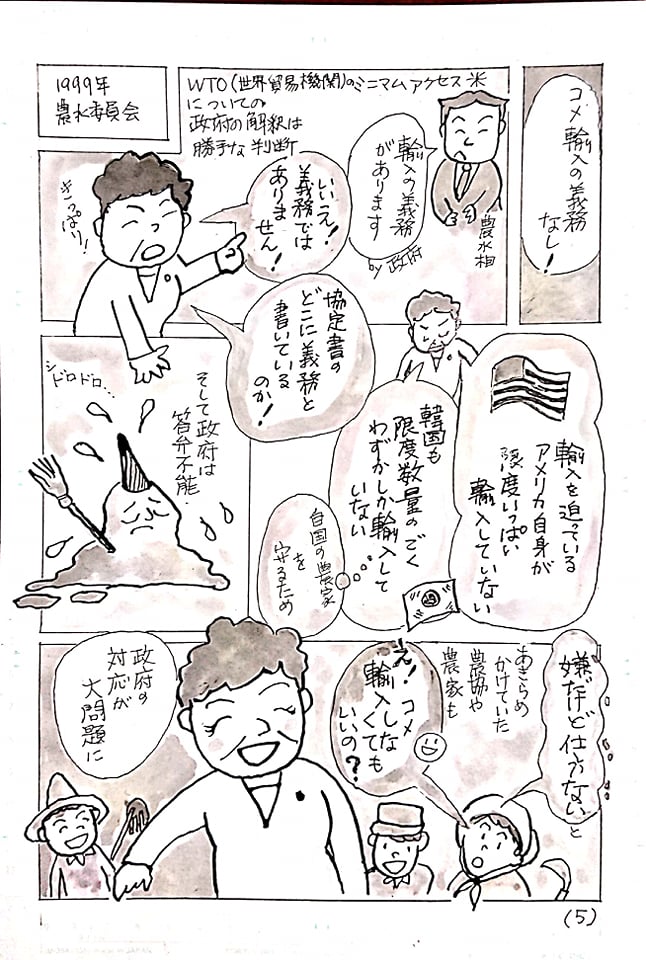 コメ輸入の義務
なし!
1999年
農水委員会
WTO(世界貿易機関)のミニマムアクセス米
についての
政府の解釈は
勝手な判断
輸入の義務
があります
by政府
農水相
いいえ!
義務では
ありま
せん!
きっぱり!
協定書の
どこに義務と
書いている
のか!
輸入を迫っている
アメリカ自身が
限度いっぱい
輸入していない
韓国も
限度数量のごく
わずかしか輸入して
いない
自国の農家
を
守るため
そして政府は
答弁不能
ドロドロ…
嫌だけど仕方ないと
あきらめ
かけていた
農協や
農家も
え!コメ
輸入しな
くても
いいの?
政府の
対応が
大問題に
(5)